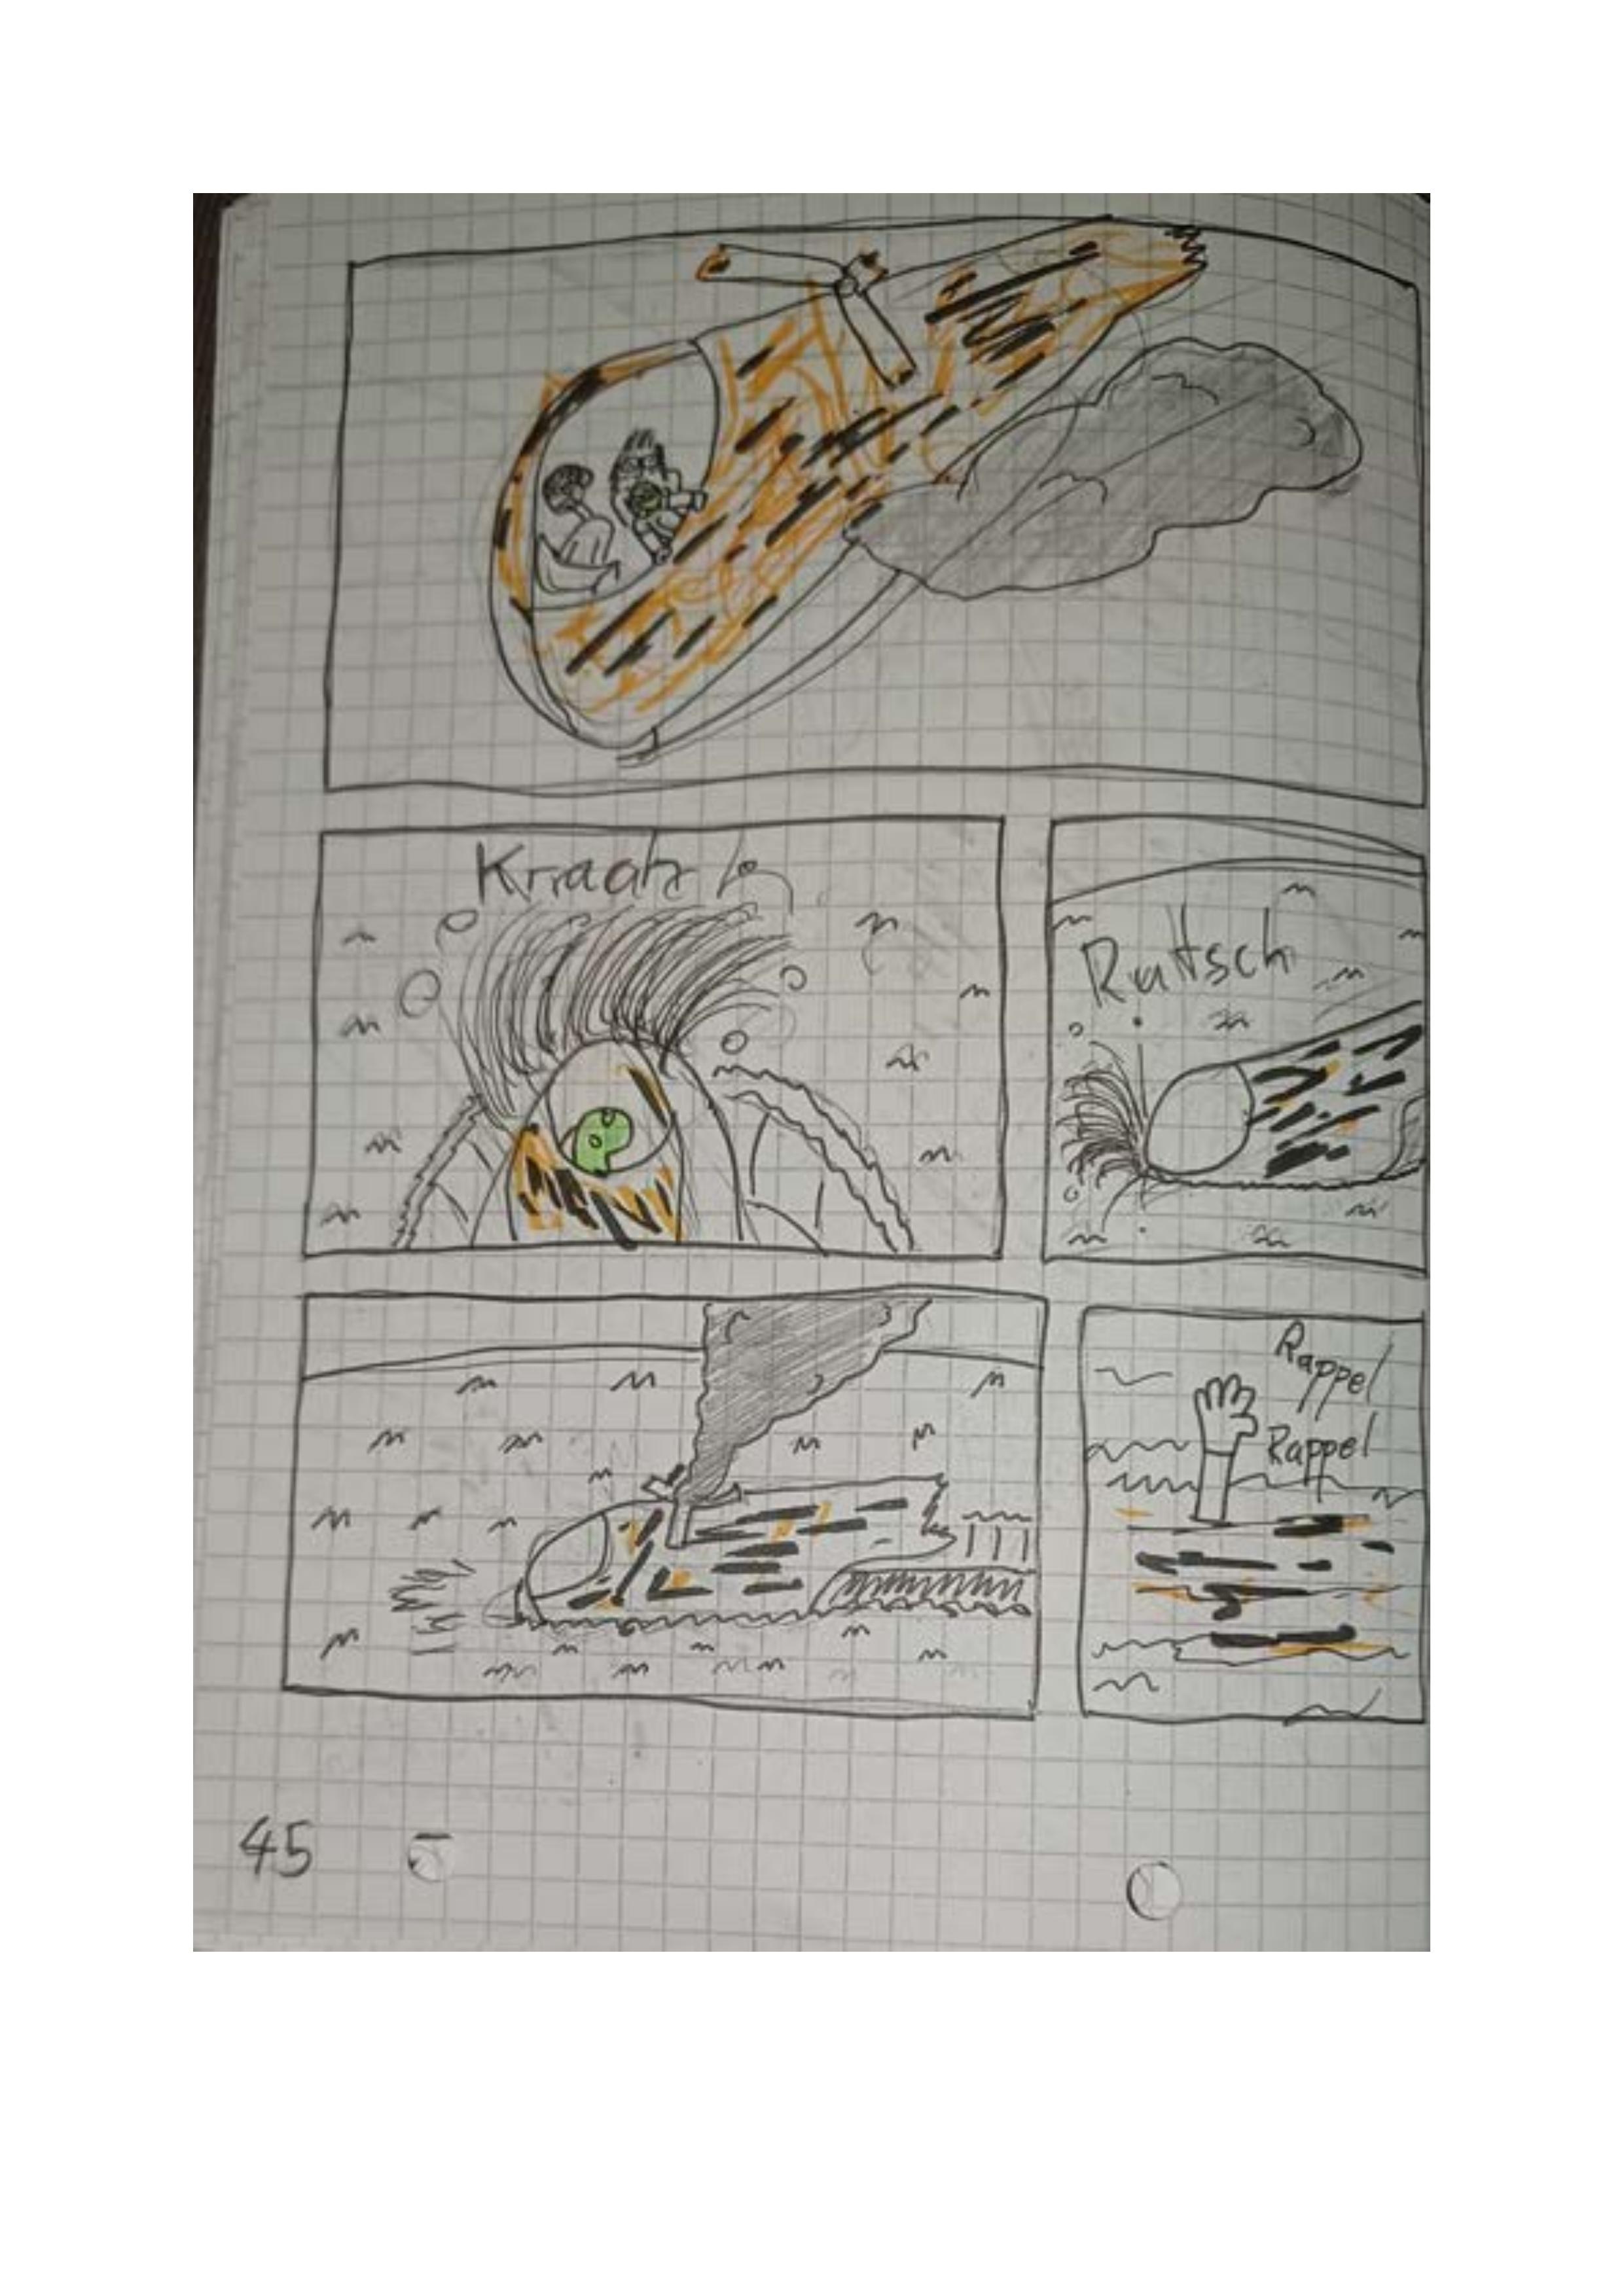 Kraatz
Rutsch
Rappel
Rappel
45